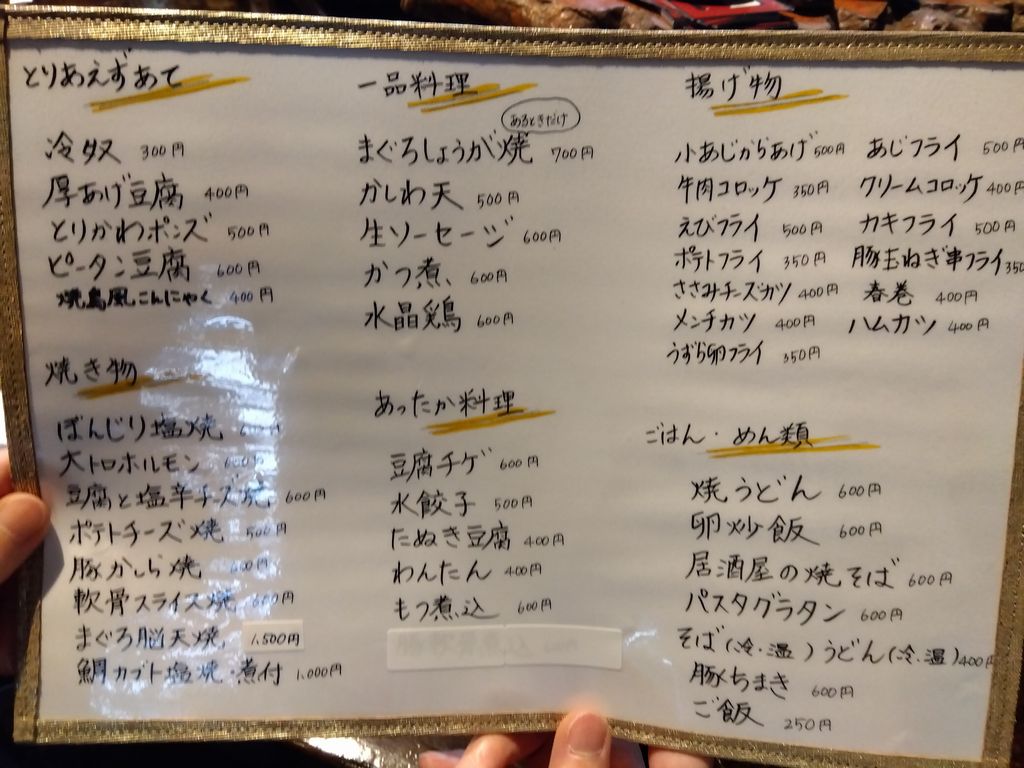 とりあえずあて
冷奴 300円
厚あげ豆腐 400円
とりかわポンズ 500円
ピータン豆腐 600円
焼鳥風こんにゃく 400円
焼き物
ぼんじり塩焼
大トロホルモン
豆腐と塩辛チーズ焼 600円
ポテトチーズ焼 500円
豚かしら焼 600円
軟骨スライス焼 600円
まぐろ脳天焼 1,500円
鯛カブト塩焼・煮付 1,000円
一品料理
あるときだけ
まぐろしょうが焼 700円
かしわ天 500円
生ソーセージ 600円
かつ煮 600円
水晶鶏 600円
あったか料理
豆腐チゲ 600円
水餃子 500円
たぬき豆腐 400円
わんたん 400円
もつ煮込 600円
揚げ物
小あじからあげ 500円 あじフライ 500円
牛肉コロッケ 350円 クリームコロッケ 400円
えびフライ 500円 カキフライ 500円
ポテトフライ 350円 豚玉ねぎ串フライ 350
ささみチーズカツ 400円 春巻 400円
メンチカツ 400円 ハムカツ 400円
うずら卵フライ 350円
ごはん・めん類
焼うどん 600円
卵炒飯 600円
居酒屋の焼そば 600円
パスタグラタン 600円
そば(冷・温)うどん(冷・温)400円
豚ちまき 600円
ご飯 250円